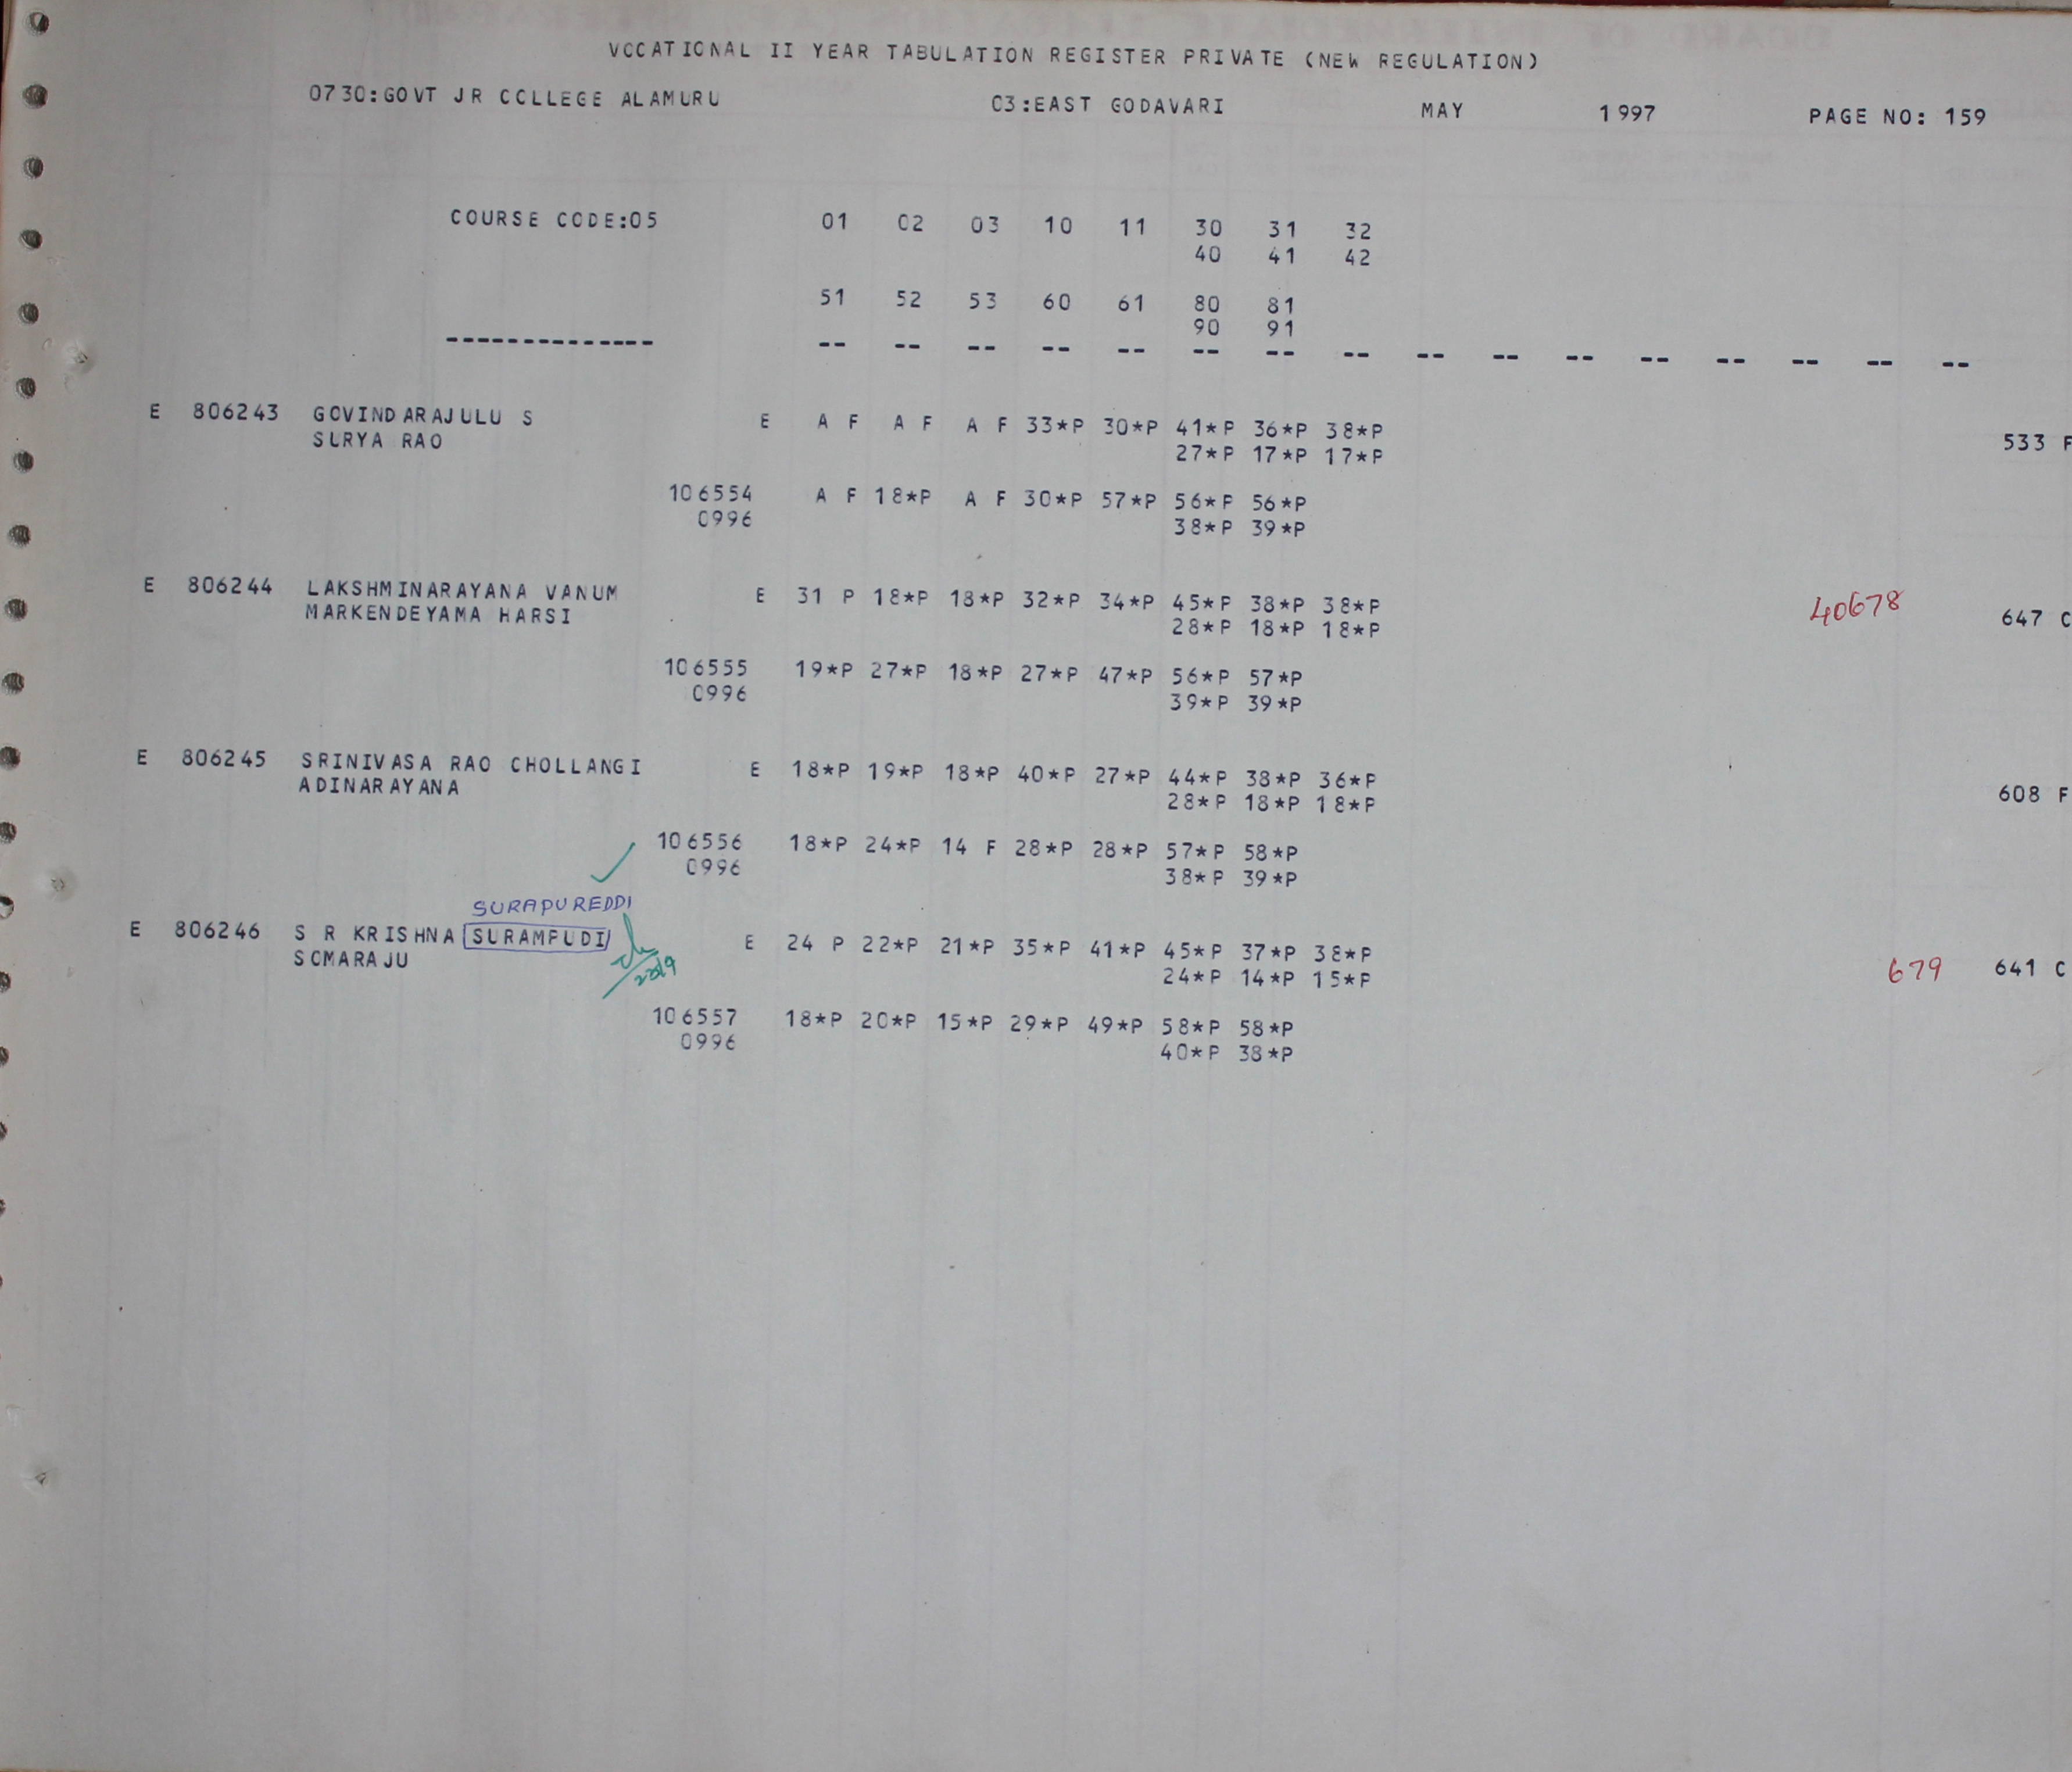 VOCATIONAL II YEAR TABULATION REGISTER PRIVATE (NEW REGULATION)
0730:GOVT JR COLLEGE ALAMURU 03:EAST GODAVARI MAY 1997 PAGE NO: 159
COURSE CODE:05 01 02 03 10 11 30 31 32
40 41 42
51 52 53 60 61 80 81
90 91
-------------- -- -- -- -- -- -- -- -- -- -- -- -- -- -- -- --
E 806243 GOVINDARAJULU S E A F A F A F 33*P 30*P 41*P 36*P 38*P
SURYA RAO 27*P 17*P 17*P 533 F
106554 A F 18*P A F 30*P 57*P 56*P 56*P
0996 38*P 39*P
E 806244 LAKSHMINARAYANA VANUM E 31 P 18*P 18*P 32*P 34*P 45*P 38*P 38*P 40678
MARKENDEYAMA HARSI 28*P 18*P 18*P 647 C
106555 19*P 27*P 18*P 27*P 47*P 56*P 57*P
0996 39*P 39*P
E 806245 SRINIVASA RAO CHOLLANGI E 18*P 19*P 18*P 40*P 27*P 44*P 38*P 36*P
ADINARAYANA 28*P 18*P 18*P 608 F
106556 18*P 24*P 14 F 28*P 28*P 57*P 58*P
0996 38*P 39*P
SURAPUREDDI
E 806246 S R KRISHNA SURAMPUDI E 24 P 22*P 21*P 35*P 41*P 45*P 37*P 38*P
SOMARAJU 24*P 14*P 15*P 679 641 C
106557 18*P 20*P 15*P 29*P 49*P 58*P 58*P
0996 40*P 38*P